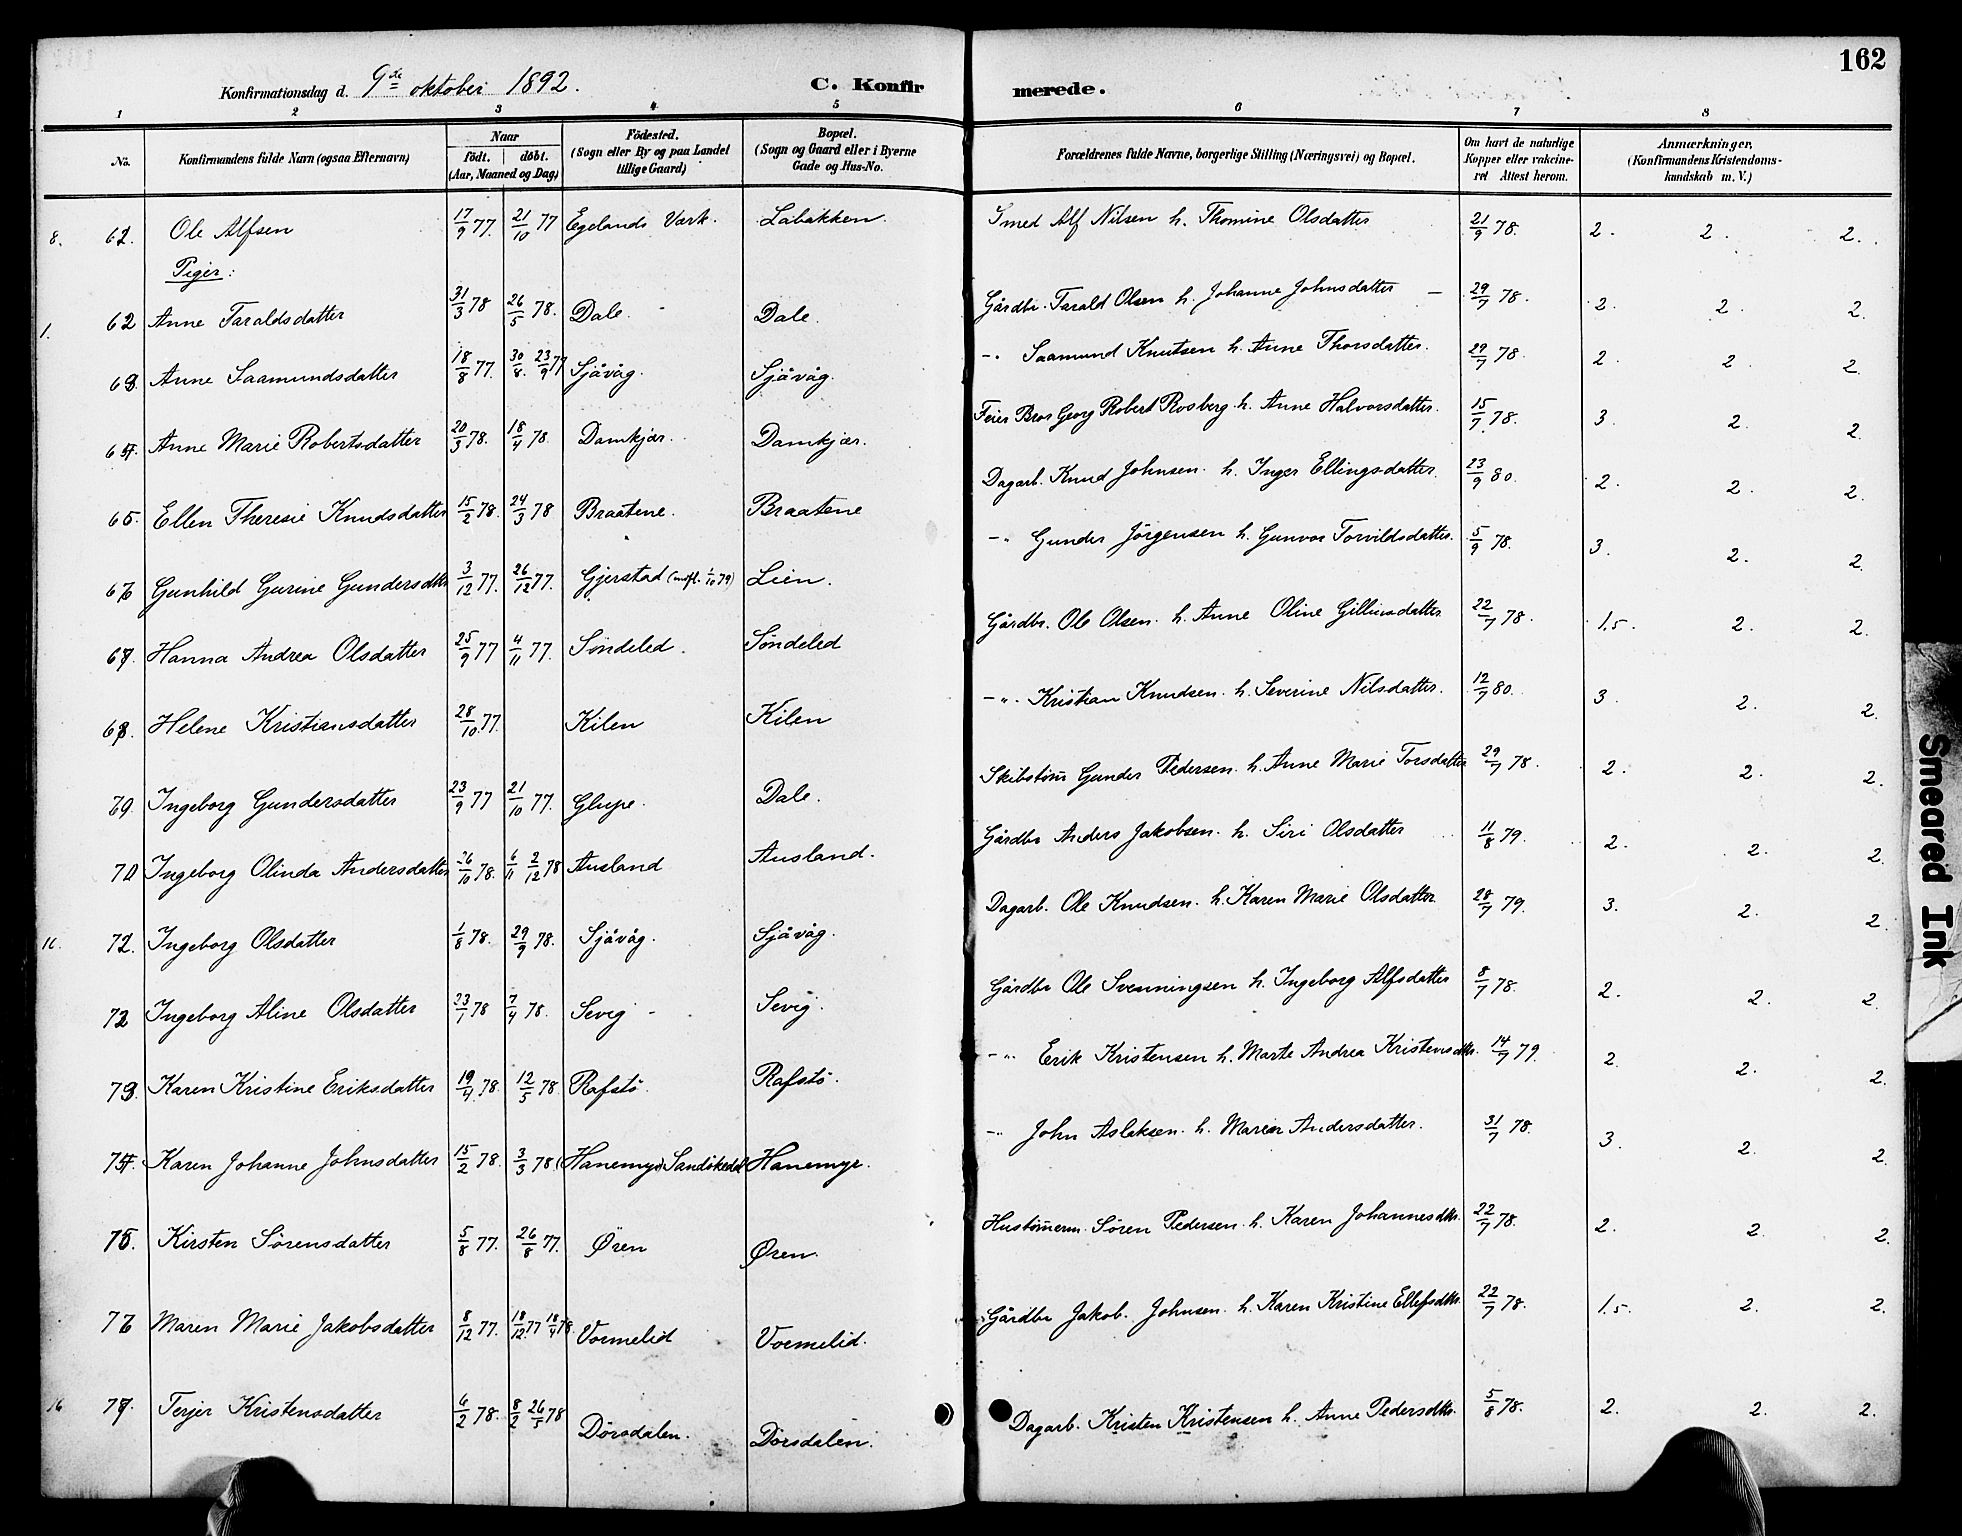 162
Konfirmationsdag d. 9de oktober 1892. C. Konfirmerede.
1 2 3 4 5 6 7 8
No. Konfirmandens fulde Navn (ogsaa Efternavn) Naar födt. döbt. (Aar, Maaned og Dag) Födested. (Sogn eller By og paa Landet tillige Gaard) Bopæl. (Sogn og Gaard eller i Byerne Gade og Hus-No. Forældrenes fulde Navne, borgerlige Stilling (Næringsvei) og Bopæl. Om havt de naturlige Kopper eller vakcineret Attest herom. Anmærkninger, (Konfirmandens Kristendomskundskab m. V.)
8. 61. Ole Alfsen 17/9 77. 21/10 77 Egelands Værk. Labakken. Smed Alf Nilsen h. Thomine Olsdatter 21/9 78. 2. 2. 2.
Piger:
1. 62 Anne Taraldsdatter 31/3 78 26/5 78. Dale. Dale. Gårdbr. Tarald Olsen h. Johanne Johnsdatter 29/7 78. 2. 2. 2.
63. Anne Saamundsdatter 18/8 77. 30/8. 23/9 77 Sjåvåg. Sjåvåg. -"- Saamund Knutsen h. Anne Thorsdatter. 29/7 78. 2. 2. 2.
64. Anne Marie Robertsdatter 20/3 78. 18/4 78. Damkjær. Damkjær. Feier Bror Georg Robert Rosberg h. Anne Halvorsdatter. 15/7 78. 3. 2. 2.
65. Ellen Theresie Knudsdatter 15/2 78. 24/3 78 Braatene. Braatene Dagarb. Knud Johnsen. h. Inger Ellingsdatter. 23/9 80. 2. 2. 2.
66 Gunhild Gurine Gundersdtr. 3/12 77. 26/12 77. Gjerstad (indfl. 1/10 79) Lien. -"- Gunder Jörgensen h. Gunvor Torvildsdatter. 5/9 78. 3. 2. 2.
67. Hanna Andrea Olsdatter 25/9 77 4/11 77. Söndeled. Söndeled Gårdbr. Ole Olsen. h. Anne Oline 22/7 78. 1.5. 2. 2.
68. Helene Kristiansdatter 28/10 77. Kilen Kilen -"- Kristian Knudsen. h. Severine Nilsdatter. 12/7 80. 3. 2. 2.
69. Ingeborg Gundersdatter 23/9 77 21/10 77. Glupe. Dale. Skibstöm̄r Gunder Pedersen. h. Anne Marie Torsdatter 29/7 78. 2. 2. 2.
70 Ingeborg Olinda Andersdatter 26/10 78. 6/11 2/12 78 Ausland Ausland. Gårdbr Anders Jakobsen. h. Siri Olsdatter 11/8 79. 2. 2. 2.
71. Ingeborg Olsdatter 1/8 78. 29/9 78. Sjåvåg. Sjåvåg. Dagarb. Ole Knudsen. h. Karen Marie Olsdatter 28/7 79. 3. 2. 2.
72 Ingeborg Aline Olsdatter 23/1 78 7/4 78. Sevig Sevig. Gårdbr Ole Svenningsen h. Ingeborg Alfsdatter 8/7 78. 2. 2. 2.
73. Karen Kristine Eriksdatter 19/4 78. 12/5 78 Rafstö. Rafstö. -"- Erik Kristensen h. Marte Andrea Kristensdtr. 14/7 79. 2. 2. 2.
74. Karen Johanne Johnsdatter 15/2 78. 3/3 78 (Hanemyr) Sandökedal Hanemyr. -"- John Aslaksen. h. Maren Andersdatter. 31/7 78. 3. 2. 2.
75. Kirsten Sörensdatter 5/8 77. 26/8 77. Øren Øren. Hustöm̄erm. Sören Pedersen. h. Karen Johannesdtr. 22/7 78. 2. 2. 2.
76 Maren Marie Jakobsdatter 8/12 77. 18/12 77 18/4 78 Vormelid Vormelid. Gårdbr Jakob. Johnsen. h. Karen Kristine Ellefsdtr. 22/7 78. 1.5. 2. 2.
16 77. Terjer Kristensdatter 6/2 78. 8/2 26/5 78 Dörsdalen. Dörsdalen. Dagarb. Kristen Kristensen h. Anne Pedersdtr. 5/8 78. 2. 2. 2.
Smeared Ink